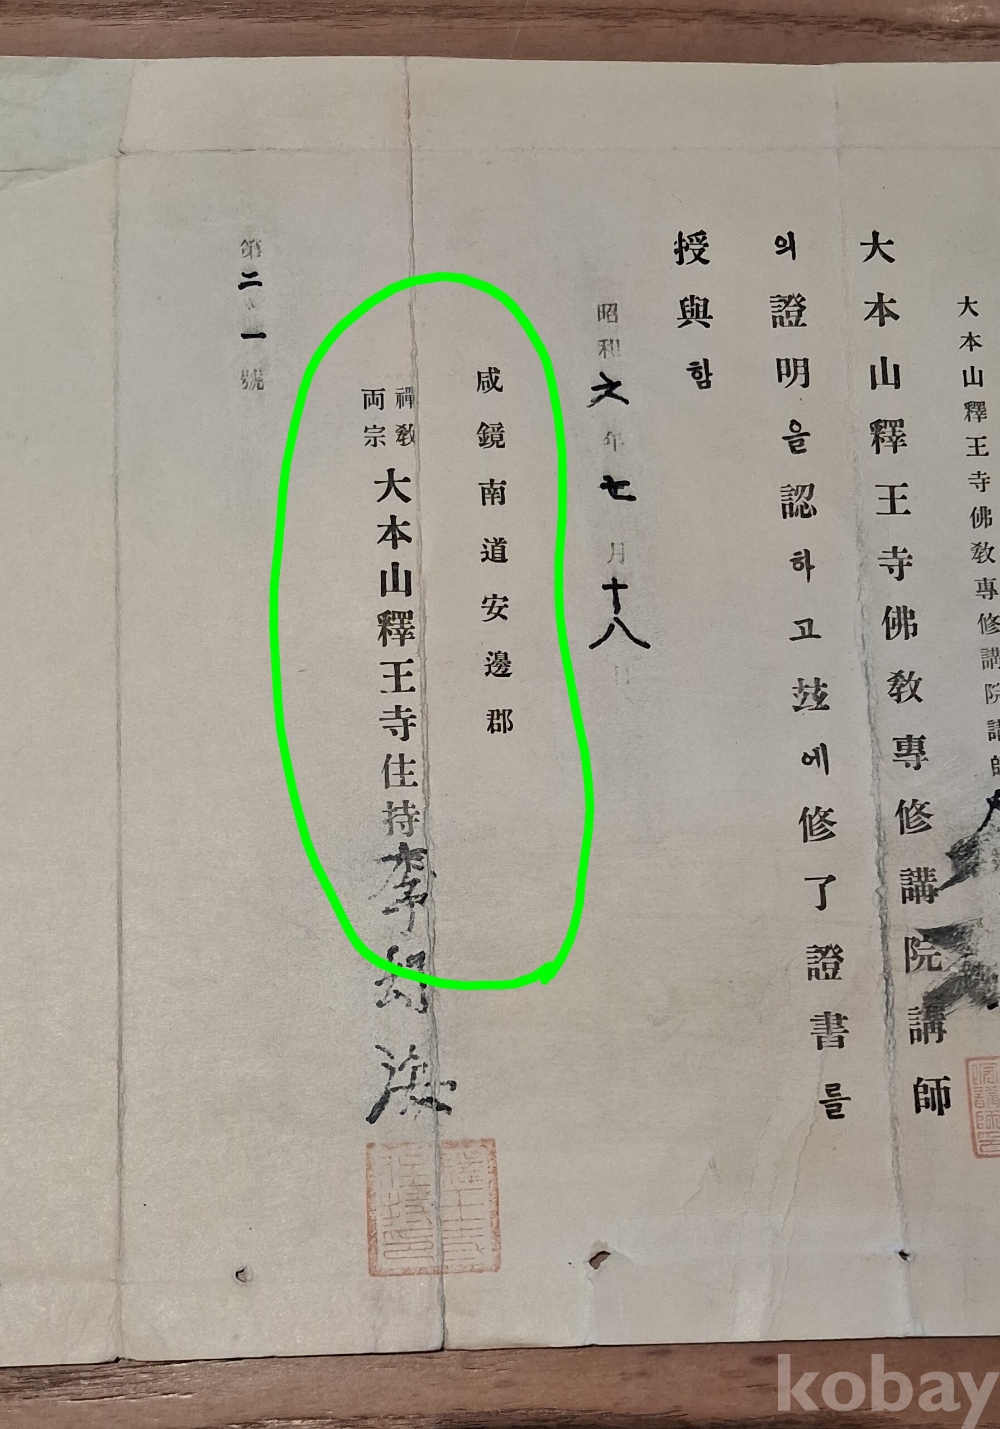 大本山釋王寺佛敎專修講院講師
大本山釋王寺佛敎專修講院講師
의證明을認하고玆에修了證書를
授與함
昭和六年七月十八日
咸鏡南道安邊郡
禪敎
両宗
大本山釋王寺住持李幻海
第二一號
kobay